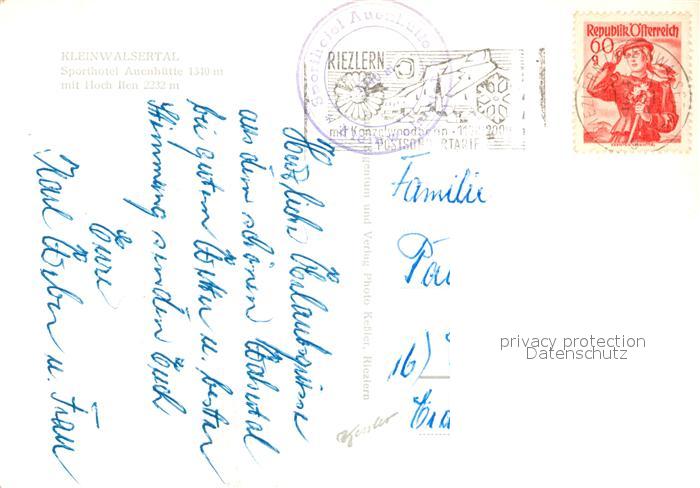 KLEINWALSERTAL
Sporthotel Auenhütte 1340 m
mit Hoch Ifen 2232 m
Herzliche Urlaubsgrüsse
aus dem schönen Walsertal
bei gutem Wetter u. bester
Stimmung senden Euch
Eure
Karl Weber u. Frau
Eigentum und Verlag Photo Keßler, Riezlern
Kessler
Sporthotel Auenhütte
RIEZLERN
mit Kanzelwandbahn
POSTSONDERTARIF
Republik Österreich
60
g
Familie
16)
privacy protection
Datenschutz